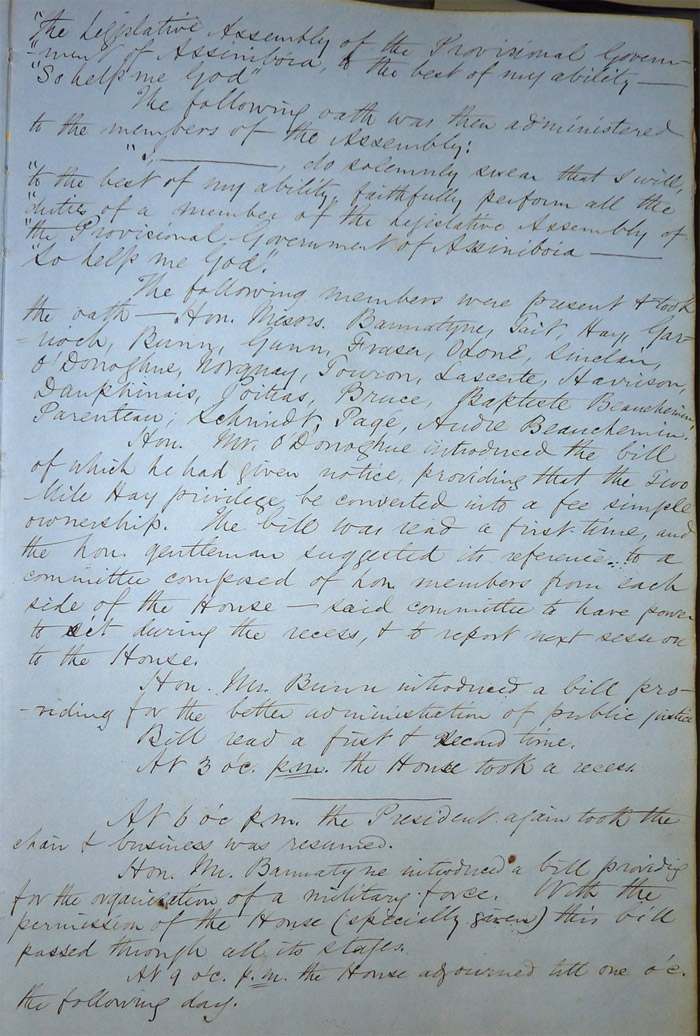 "the Legislative Assembly of the Provisional Govern-
"ment of Assiniboia, to the best of my ability —
"So help me God"
The following oath was then administered
to the members of the Assembly:
"I, ————, do solemnly swear that I will,
"to the best of my ability, faithfully perform all the
"duties of a member of the Legislative Assembly of
"the Provisional Government of Assiniboia —
"So help me God".
The following members were present & took
the oath — Hon. Messrs. Bannatyne, Tait, Hay, Gar-
-rioch, Bunn, Gunn, Fraser, Ozone, Sinclair,
O'Donoghue, Norquay, Touron, Lascerte, Harrison,
Dauphinais, Poitras, Bruce, Baptiste Beauchemin,
Parenteau, Schmidt, Pagé, Andre Beauchemin.
Hon. Mr. O'Donoghue introduced the bill
of which he had given notice, providing that the Two
Mile Hay privilege be converted into a fee simple
ownership. The bill was read a first time, and
the hon. gentleman suggested its reference to a
committee composed of hon. members from each
side of the House — said committee to have power
to sit during the recess, & to report next session
to the House.
Hon. Mr. Bunn introduced a bill pro-
-viding for the better administration of public justice
Bill read a first & second time.
At 3 oc. p.m. the House took a recess.
At 6 o'c p.m. the President again took the
chair & business was resumed.
Hon. Mr. Bannatyne introduced a bill providing
for the organization of a military force. With the
permission of the House (specially given) this bill
passed through all its stages.
At 9 o'c. p.m. the House adjourned till one o'c.
the following day.